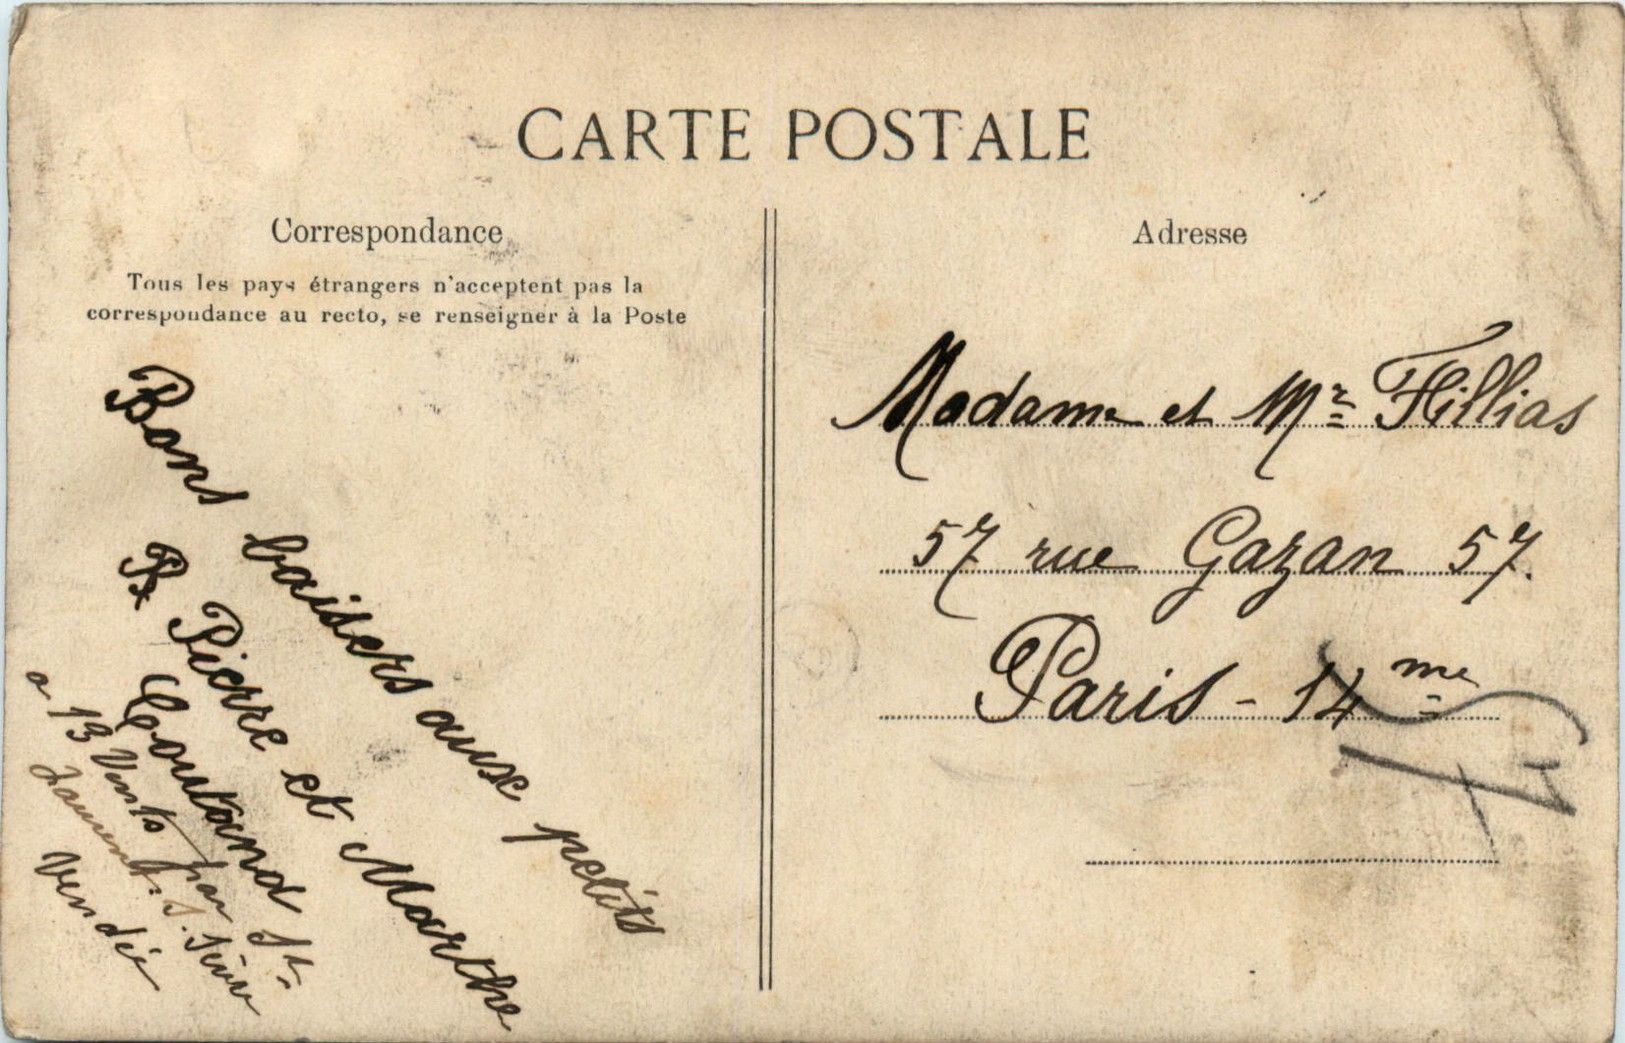 CARTE POSTALE
Correspondance
Tous les pays étrangers n'acceptent pas la
correspondance au recto, se renseigner à la Poste
Bons baisers aux petits
Pierre et Marthe
Coutand St-
a 13 Vents par
Laurent. s. Sèvre
Vendée
Adresse
Madame et Mr Fillias
57 rue Gazan 57.
Paris - 14me